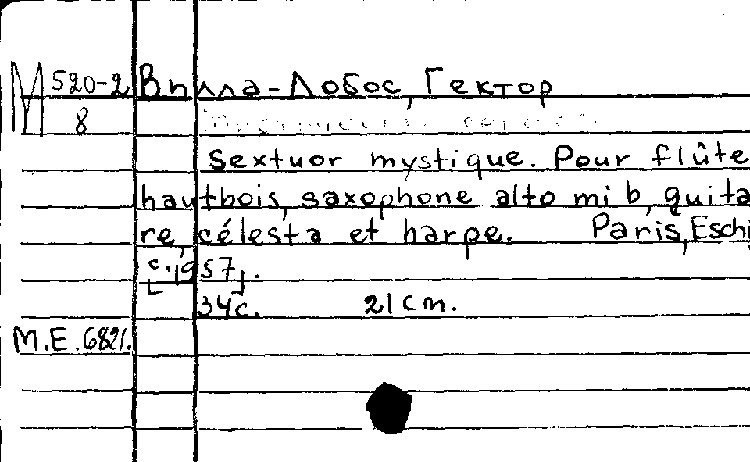 М 520-2 Вилла-Лобос, Гектор
8
Sextuor mystique. Pour flûte
hautbois, saxophone alto mi b, guita
re, célesta et harpe. Paris, Eschi
[c. 1957].
34с. 21 cm.
M.E. 6821.